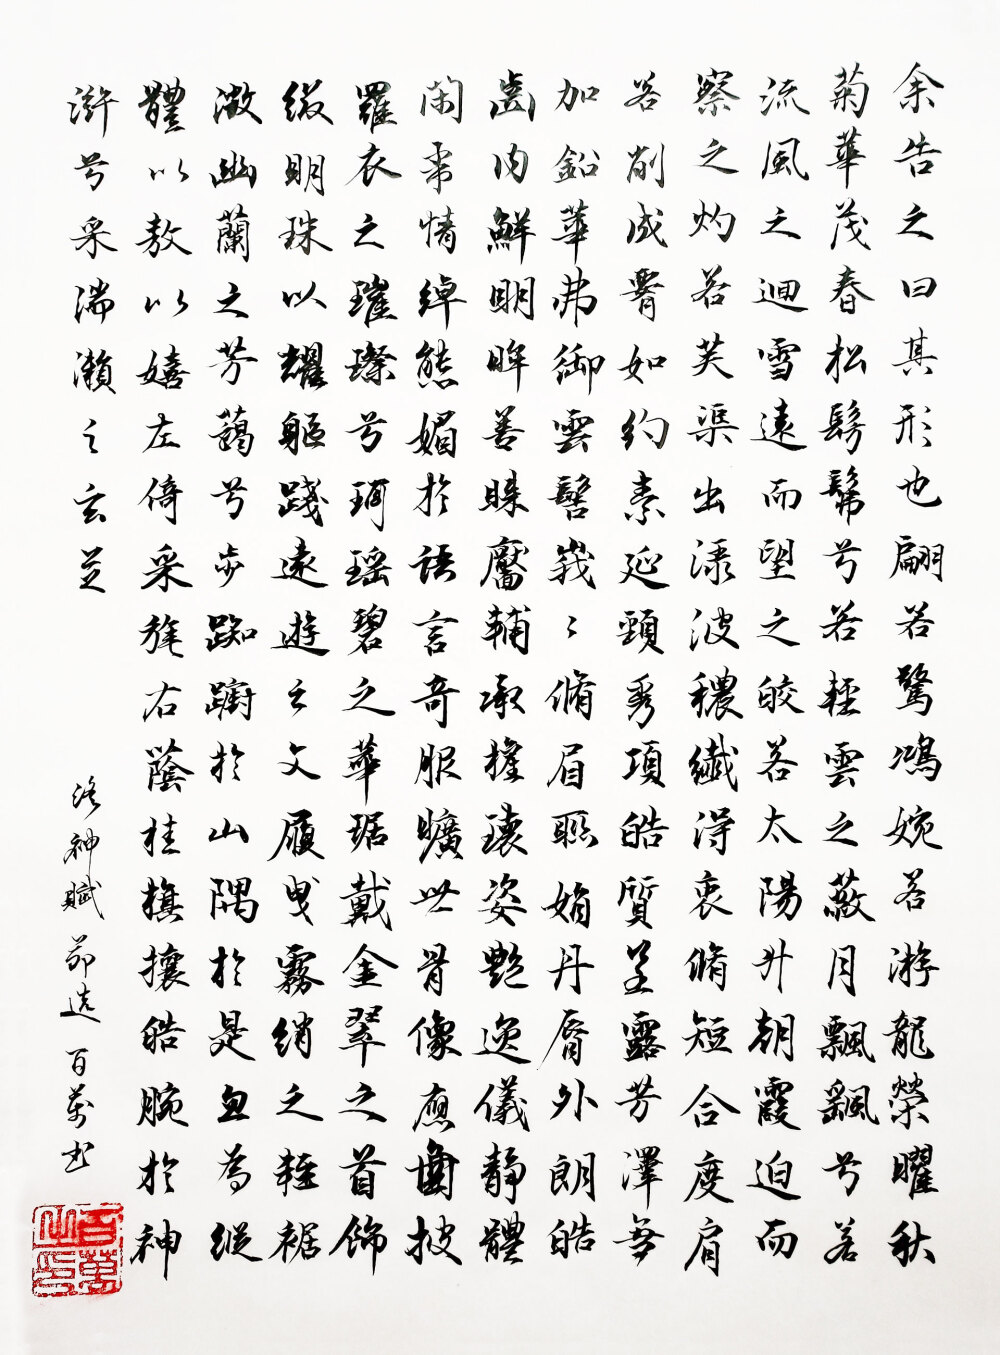 余告之曰其形也翩若驚鴻婉若游龍榮曜秋
菊華茂春松髣髴兮若輕雲之蔽月飄颻兮若
流風之迴雪遠而望之皎若太陽升朝霞迫而
察之灼若芙渠出淥波穠纖得衷脩短合度肩
若削成要如約素延頸秀項皓質呈露芳澤無
加鉛華弗御雲髻峩〻脩眉聯娟丹脣外朗皓
齒內鮮明眸善睞靨輔承權瓌姿艷逸儀静體
閑柔情綽態媚於語言奇服曠世骨像應圖披
羅衣之璀璨兮珥瑶碧之華琚戴金翠之首飾
綴明珠以耀軀踐遠遊之文履曳霧綃之輕裾
微幽蘭之芳藹兮步踟躕於山隅於是忽焉縱
體以敖以嬉左倚采旄右蔭桂旗攘皓腕於神
滸兮采湍瀨之玄芝
洛神賦 節選 百萬书
百萬之印